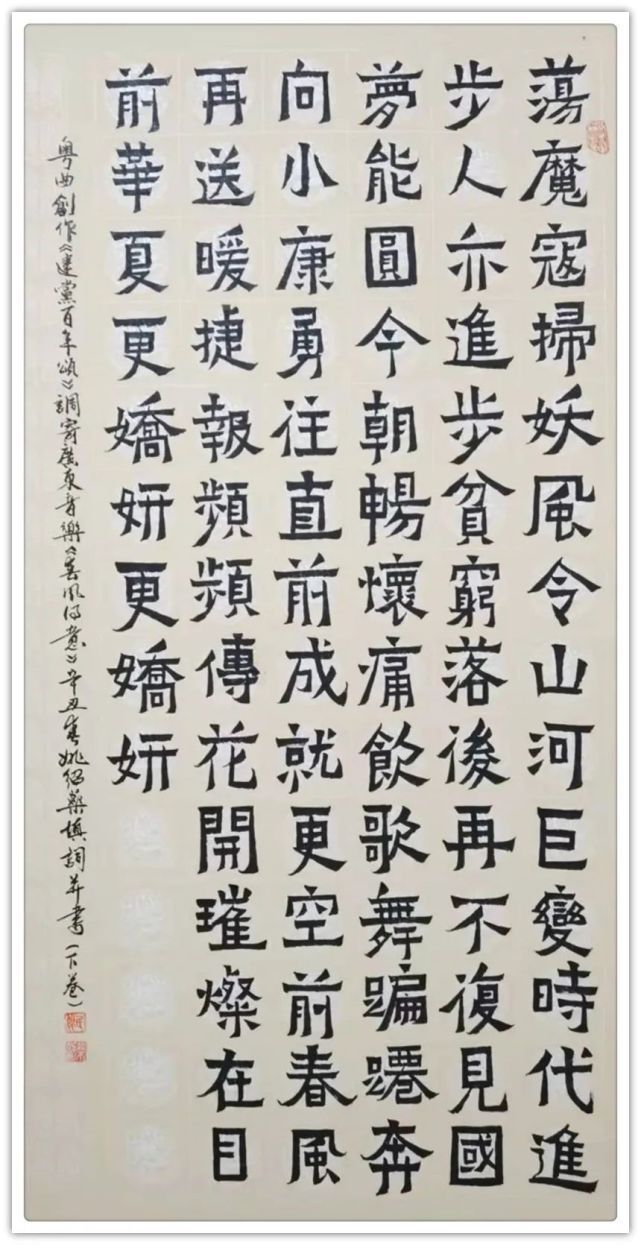 蕩魔寇掃妖風令山河巨變時代進
步人亦進步貧窮落後再不復見國
夢能圓今朝暢懷痛飲歌舞蹁躚奔
向小康勇往直前成就更空前春風
再送暖捷報頻頻傳花開璀燦在目
前華夏更嬌妍更嬌妍
粵曲創作《建黨百年頌》調寄廣東音樂《春風得意》辛丑春姚紹燊填詞并書(下卷)